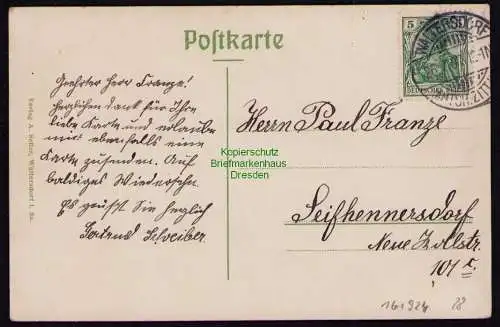 Postkarte
Geehrter Herr Franze!
Herzlichen Dank für Ihre
liebe Karte und erlaube
mir ebenfalls eine
Karte zusenden. Auf
baldiges Wiedersehn.
Es grüßt Sie herzlich
Schreiber.
Herrn Paul Franze
Seifhennersdorf
Neue Zollstr.
101
WALTERSDORF
5
Kopierschutz
Briefmarkenhaus
Dresden
Verlag A. Waltersdorf i. Sa.
161924